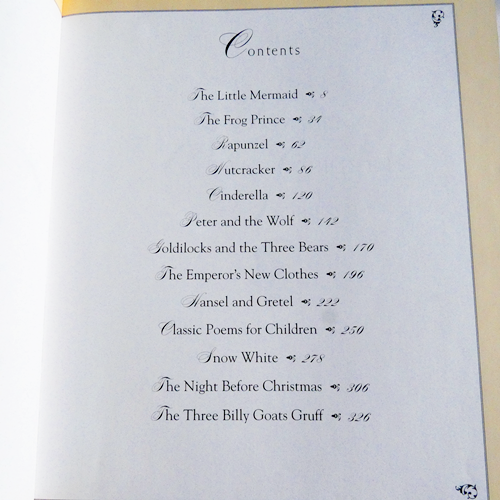 Contents
The Little Mermaid 8
The Frog Prince 34
Rapunzel 62
Nutcracker 86
Cinderella 120
Peter and the Wolf 142
Goldilocks and the Three Bears 170
The Emperor's New Clothes 196
Hansel and Gretel 222
Classic Poems for Children 250
Snow White 278
The Night Before Christmas 306
The Three Billy Goats Gruff 326